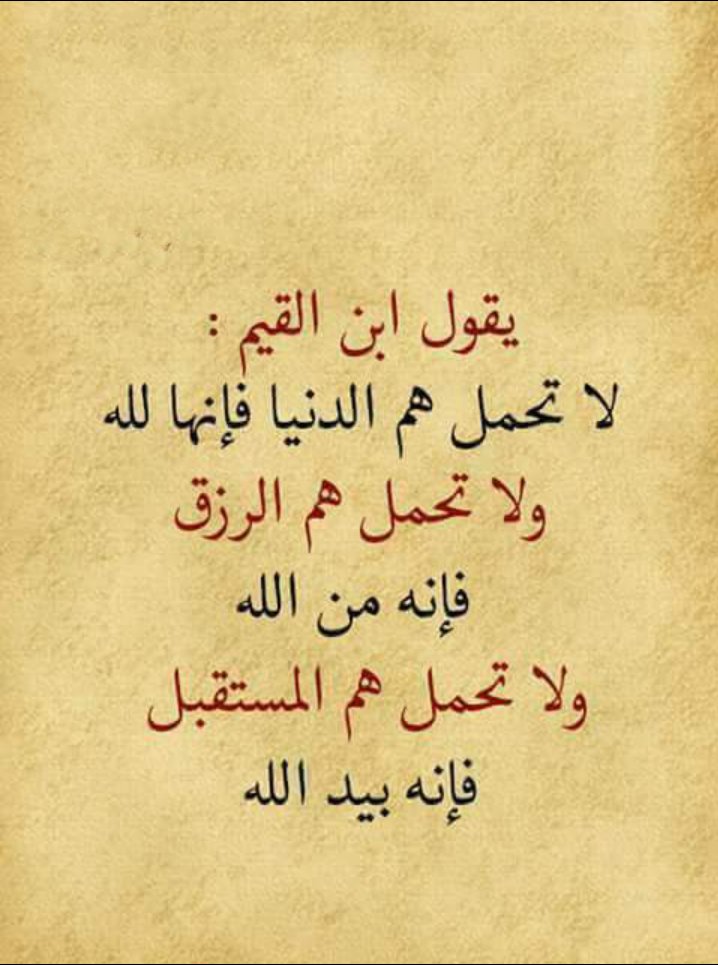 يقول ابن القيم :
لا تحمل هم الدنيا فإنها لله
ولا تحمل هم الرزق
فإنه من الله
ولا تحمل هم المستقبل
فإنه بيد الله